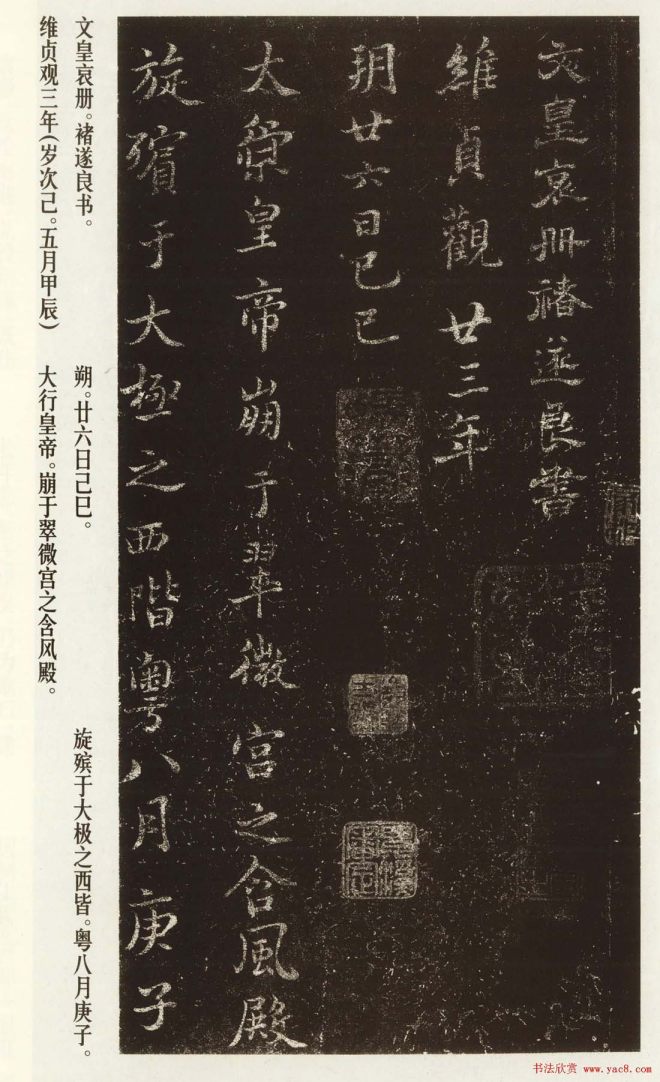 文皇哀冊褚遂良書
維貞觀廿三年
朔廿六日己巳
大皇帝崩于翠微宮之含風殿
旋殯于大極之西階粵八月庚子
文皇哀册。褚遂良书。
维贞观三年(岁次己。五月甲辰)
朔。廿六日己巳。
大行皇帝。崩于翠微宫之含风殿。
旋殡于大极之西皆。粤八月庚子。
书法欣赏 www.yac8.com